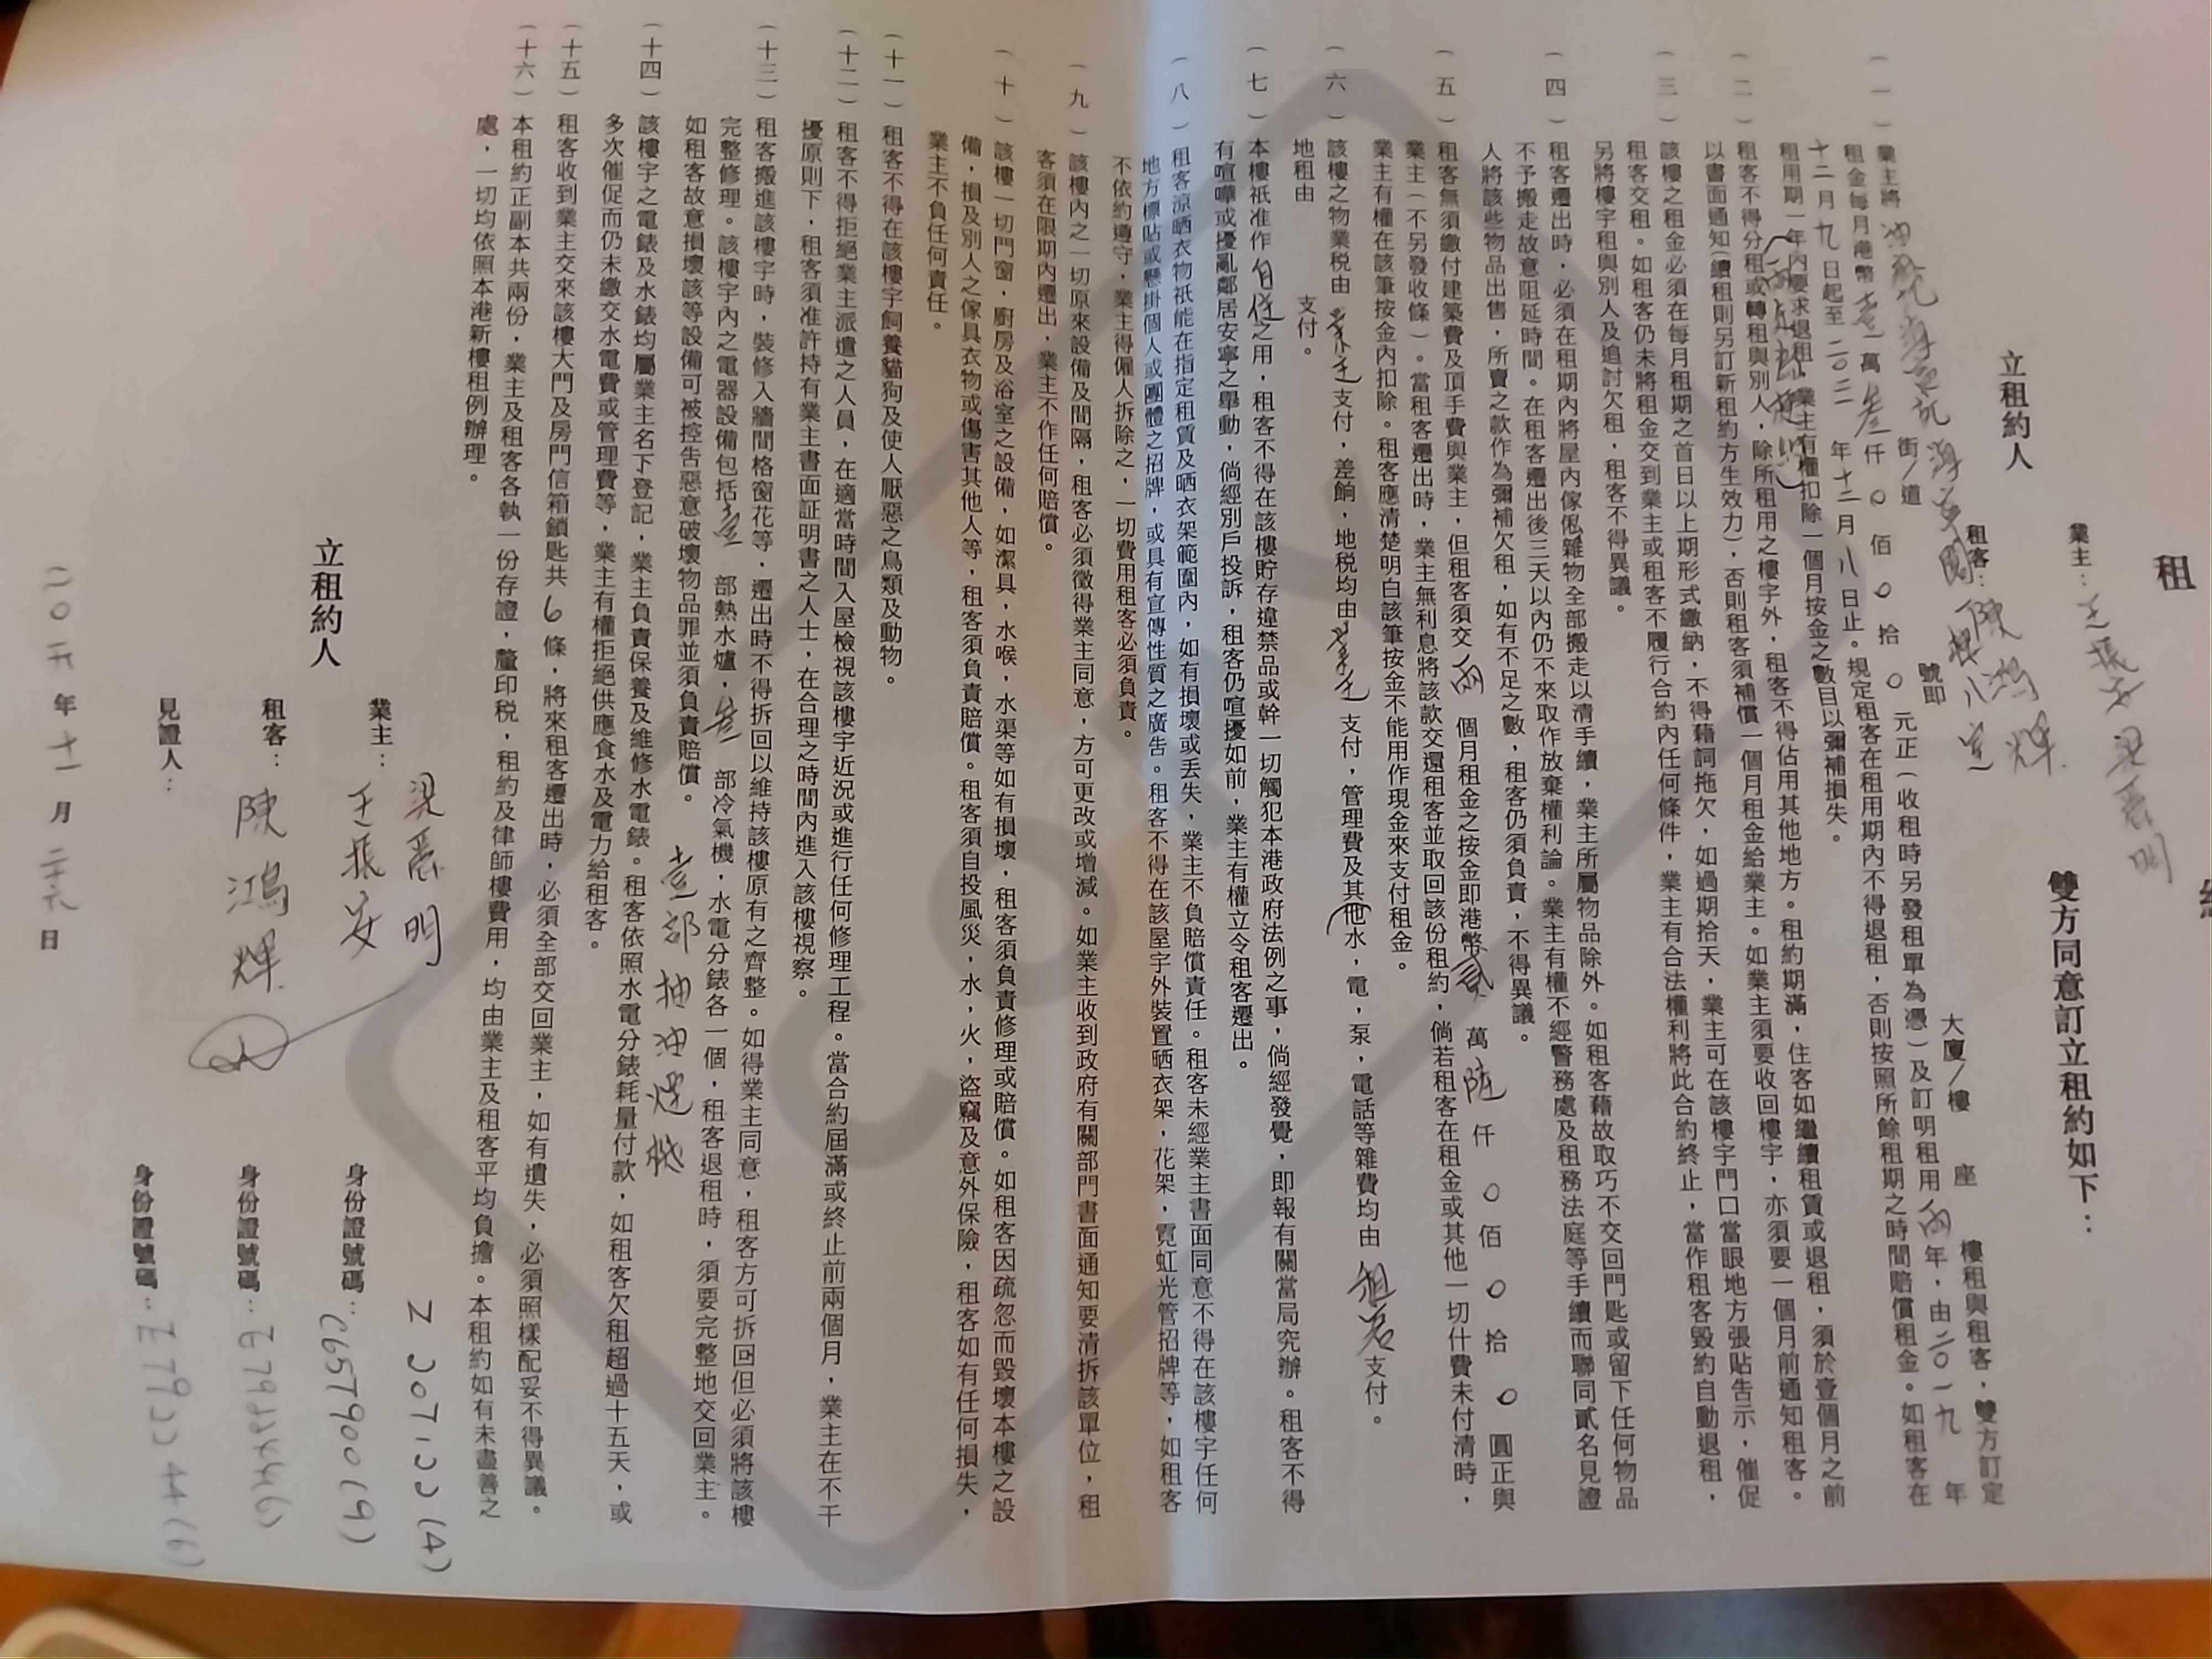 租
業主：王振安 梁
立租約人
雙方同意訂立租約如下：
租客：陳鴻輝
（一）業主將 街/道 號即 大廈/樓 座 樓租與租客，雙方訂定
租金每月港幣壹萬叁仟0佰0拾0元正（收租時另發租單為憑）及訂明租用兩年，由二〇一九年
十二月九日起至二〇二一年十二月八日止。規定租客在租用期內不得退租，否則按照所餘租期之時間賠償租金。如租客在
租用期一年內要求退租，業主有權扣除一個月按金之數目以彌補損失。
（二）租客不得分租或轉租與別人，除所租用之樓宇外，租客不得佔用其他地方。租約期滿，住客如繼續租賃或退租，須於壹個月之前
以書面通知（續租則另訂新租約方生效力），否則租客須補償一個月租金給業主。如業主須要收回樓宇，亦須要一個月前通知租客。
（三）該樓之租金必須在每月租期之首日以上期形式繳納，不得藉詞拖欠，如過期拾天，業主可在該樓宇門口當眼地方張貼告示，催促
租客交租。如租客仍未將租金交到業主或租客不履行合約內任何條件，業主有合法權利將此合約終止，當作租客毀約自動退租，
另將樓宇租與別人及追討欠租，租客不得異議。
（四）租客遷出時，必須在租期內將屋內傢俬雜物全部搬走以清手續，業主所屬物品除外。如租客藉故取巧不交回門匙或留下任何物品
不予搬走故意阻延時間。在租客遷出後三天以內仍不來取作放棄權利論。業主有權不經警務處及租務法庭等手續而聯同貳名見證
人將該些物品出售，所賣之款作為彌補欠租，如有不足之數，租客仍須負責，不得異議。
（五）租客無須繳付建築費及頂手費與業主，但租客須交兩個月租金之按金即港幣貳萬陸仟0佰0拾0圓正與
業主（不另發收條）。當租客遷出時，業主無利息將該款交還租客並取回該份租約，倘若租客在租金或其他一切什費未付清時，
業主有權在該筆按金內扣除。租客應清楚明白該筆按金不能用作現金來支付租金。
（六）該樓之物業稅由業主支付，差餉，地稅均由業主支付，管理費及其他水，電，泵，電話等雜費均由租客支付。
地租由 支付。
（七）本樓祇准作自住之用，租客不得在該樓貯存違禁品或幹一切觸犯本港政府法例之事，倘經發覺，即報有關當局究辦。租客不得
有喧嘩或擾亂鄰居安寧之舉動，倘經別戶投訴，租客仍喧擾如前，業主有權立令租客遷出。
（八）租客涼晒衣物祇能在指定租賃及晒衣架範圍內，如有損壞或丟失，業主不負賠償責任。租客未經業主書面同意不得在該樓宇任何
地方標貼或懸掛個人或團體之招牌，或具有宣傳性質之廣告。租客不得在該屋宇外裝置晒衣架，花架，霓虹光管招牌等，如租客
不依約遵守，業主得僱人拆除之，一切費用租客必須負責。
（九）該樓內之一切原來設備及間隔，租客必須徵得業主同意，方可更改或增減。如業主收到政府有關部門書面通知要清拆該單位，租
客須在限期內遷出，業主不作任何賠償。
（十）該樓一切門窗，廚房及浴室之設備，如潔具，水喉，水渠等如有損壞，租客須負責修理或賠償。如租客因疏忽而毀壞本樓之設
備，損及別人之傢具衣物或傷害其他人等，租客須負責賠償。租客須自投風災，水，火，盜竊及意外保險，租客如有任何損失，
業主不負任何責任。
（十一）租客不得在該樓宇飼養貓狗及使人厭惡之鳥類及動物。
（十二）租客不得拒絕業主派遣之人員，在適當時間入屋檢視該樓宇近況或進行任何修理工程。當合約屆滿或終止前兩個月，業主在不干
擾原則下，租客須准許持有業主書面証明書之人士，在合理之時間內進入該樓視察。
（十三）租客搬進該樓宇時，裝修入牆間格窗花等，遷出時不得拆回以維持該樓原有之齊整。如得業主同意，租客方可拆回但必須將該樓
完整修理。該樓宇內之電器設備包括壹部熱水爐，叁部冷氣機，水電分錶各一個，租客退租時，須要完整地交回業主。
如租客故意損壞該等設備可被控告惡意破壞物品罪並須負責賠償。 壹部抽油煙機
（十四）該樓宇之電錶及水錶均屬業主名下登記，業主負責保養及維修水電錶。租客依照水電分錶耗量付款，如租客欠租超過十五天，或
多次催促而仍未繳交水電費或管理費等，業主有權拒絕供應食水及電力給租客。
（十五）租客收到業主交來該樓大門及房門信箱鎖匙共6條，將來租客遷出時，必須全部交回業主，如有遺失，必須照樣配妥不得異議。
（十六）本租約正副本共兩份，業主及租客各執一份存證，釐印稅，租約及律師樓費用，均由業主及租客平均負擔。本租約如有未盡善之
處，一切均依照本港新樓租例辦理。
立租約人
業主：王振安 身份證號碼：C657900(9)
租客：陳鴻輝 身份證號碼：
見證人： 身份證號碼：
年十一月 日
COPY